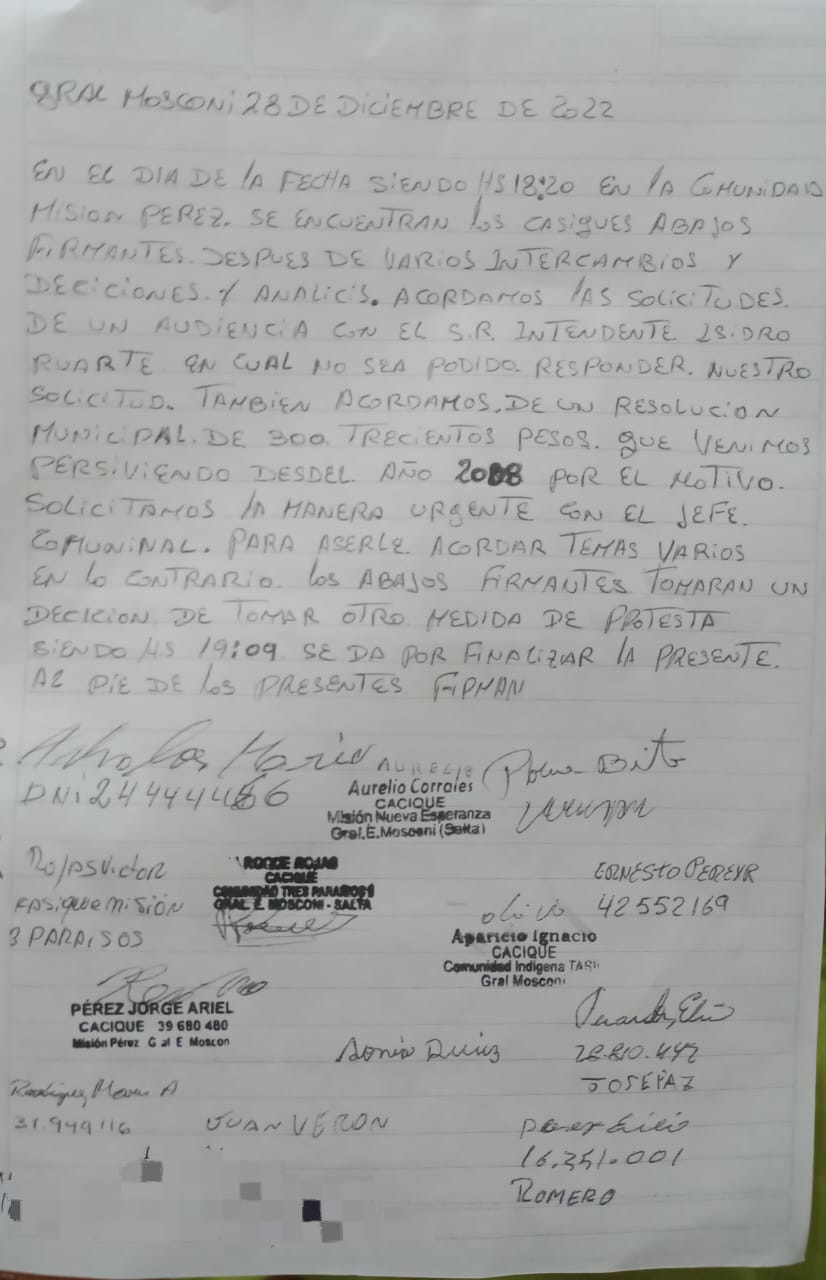 GRAL MOSCONI 28 DE DICIEMBRE DE 2022
EN EL DIA DE LA FECHA SIENDO HS 18:20 EN LA COMUNIDAD
MISION PEREZ. SE ENCUENTRAN LOS CASIQUES ABAJOS
FIRMANTES. DESPUES DE VARIOS INTERCAMBIOS Y
DECICIONES. Y ANALICIS. ACORDAMOS LAS SOLICITUDES.
DE UN AUDIENCIA CON EL S.R. INTENDENTE ISIDRO
RUARTE EN CUAL NO SEA PODIDO. RESPONDER. NUESTRO
SOLICITUD. TAMBIEN ACORDAMOS. DE UN RESOLUCION
MUNICIPAL. DE 300. TRECIENTOS PESOS. QUE VENIMOS
PERSIVIENDO DESDEL AÑO 2008 POR EL MOTIVO.
SOLICITAMOS LA MANERA URGENTE CON EL JEFE.
COMUNINAL. PARA ASERLE ACORDAR TEMAS VARIOS
EN LO CONTRARIO. LOS ABAJOS FIRMANTES TOMARAN UN
DECICION DE TOMAR OTRO MEDIDA DE PROTESTA
SIENDO HS 19:09. SE DA POR FINALIZAR LA PRESENTE.
AL PIE DE LOS PRESENTES FIRMAN
Mario
DNI 24444466
AURELIO
Aurelio Corrales
CACIQUE
Misión Nueva Esperanza
Gral. E. Mosconi (Salta)
Brito
Rojas Victor
Kasique Misión
3 PARAISOS
ROQUE ROJAS
CACIQUE
COMUNIDAD TRES PARAISOS
GRAL E. MOSCONI - SALTA
ERNESTO PEREYR
42552169
Aparicio Ignacio
CACIQUE
Comunidad Indigena TASI
Gral Mosconi
PÉREZ JORGE ARIEL
CACIQUE 39 680 480
Misión Pérez G al E Moscon
Sonia Ruiz
28.810.447
JOSE PAZ
Rodriguez Mario A
31.949116
JUAN VERON
16.351.001
ROMERO